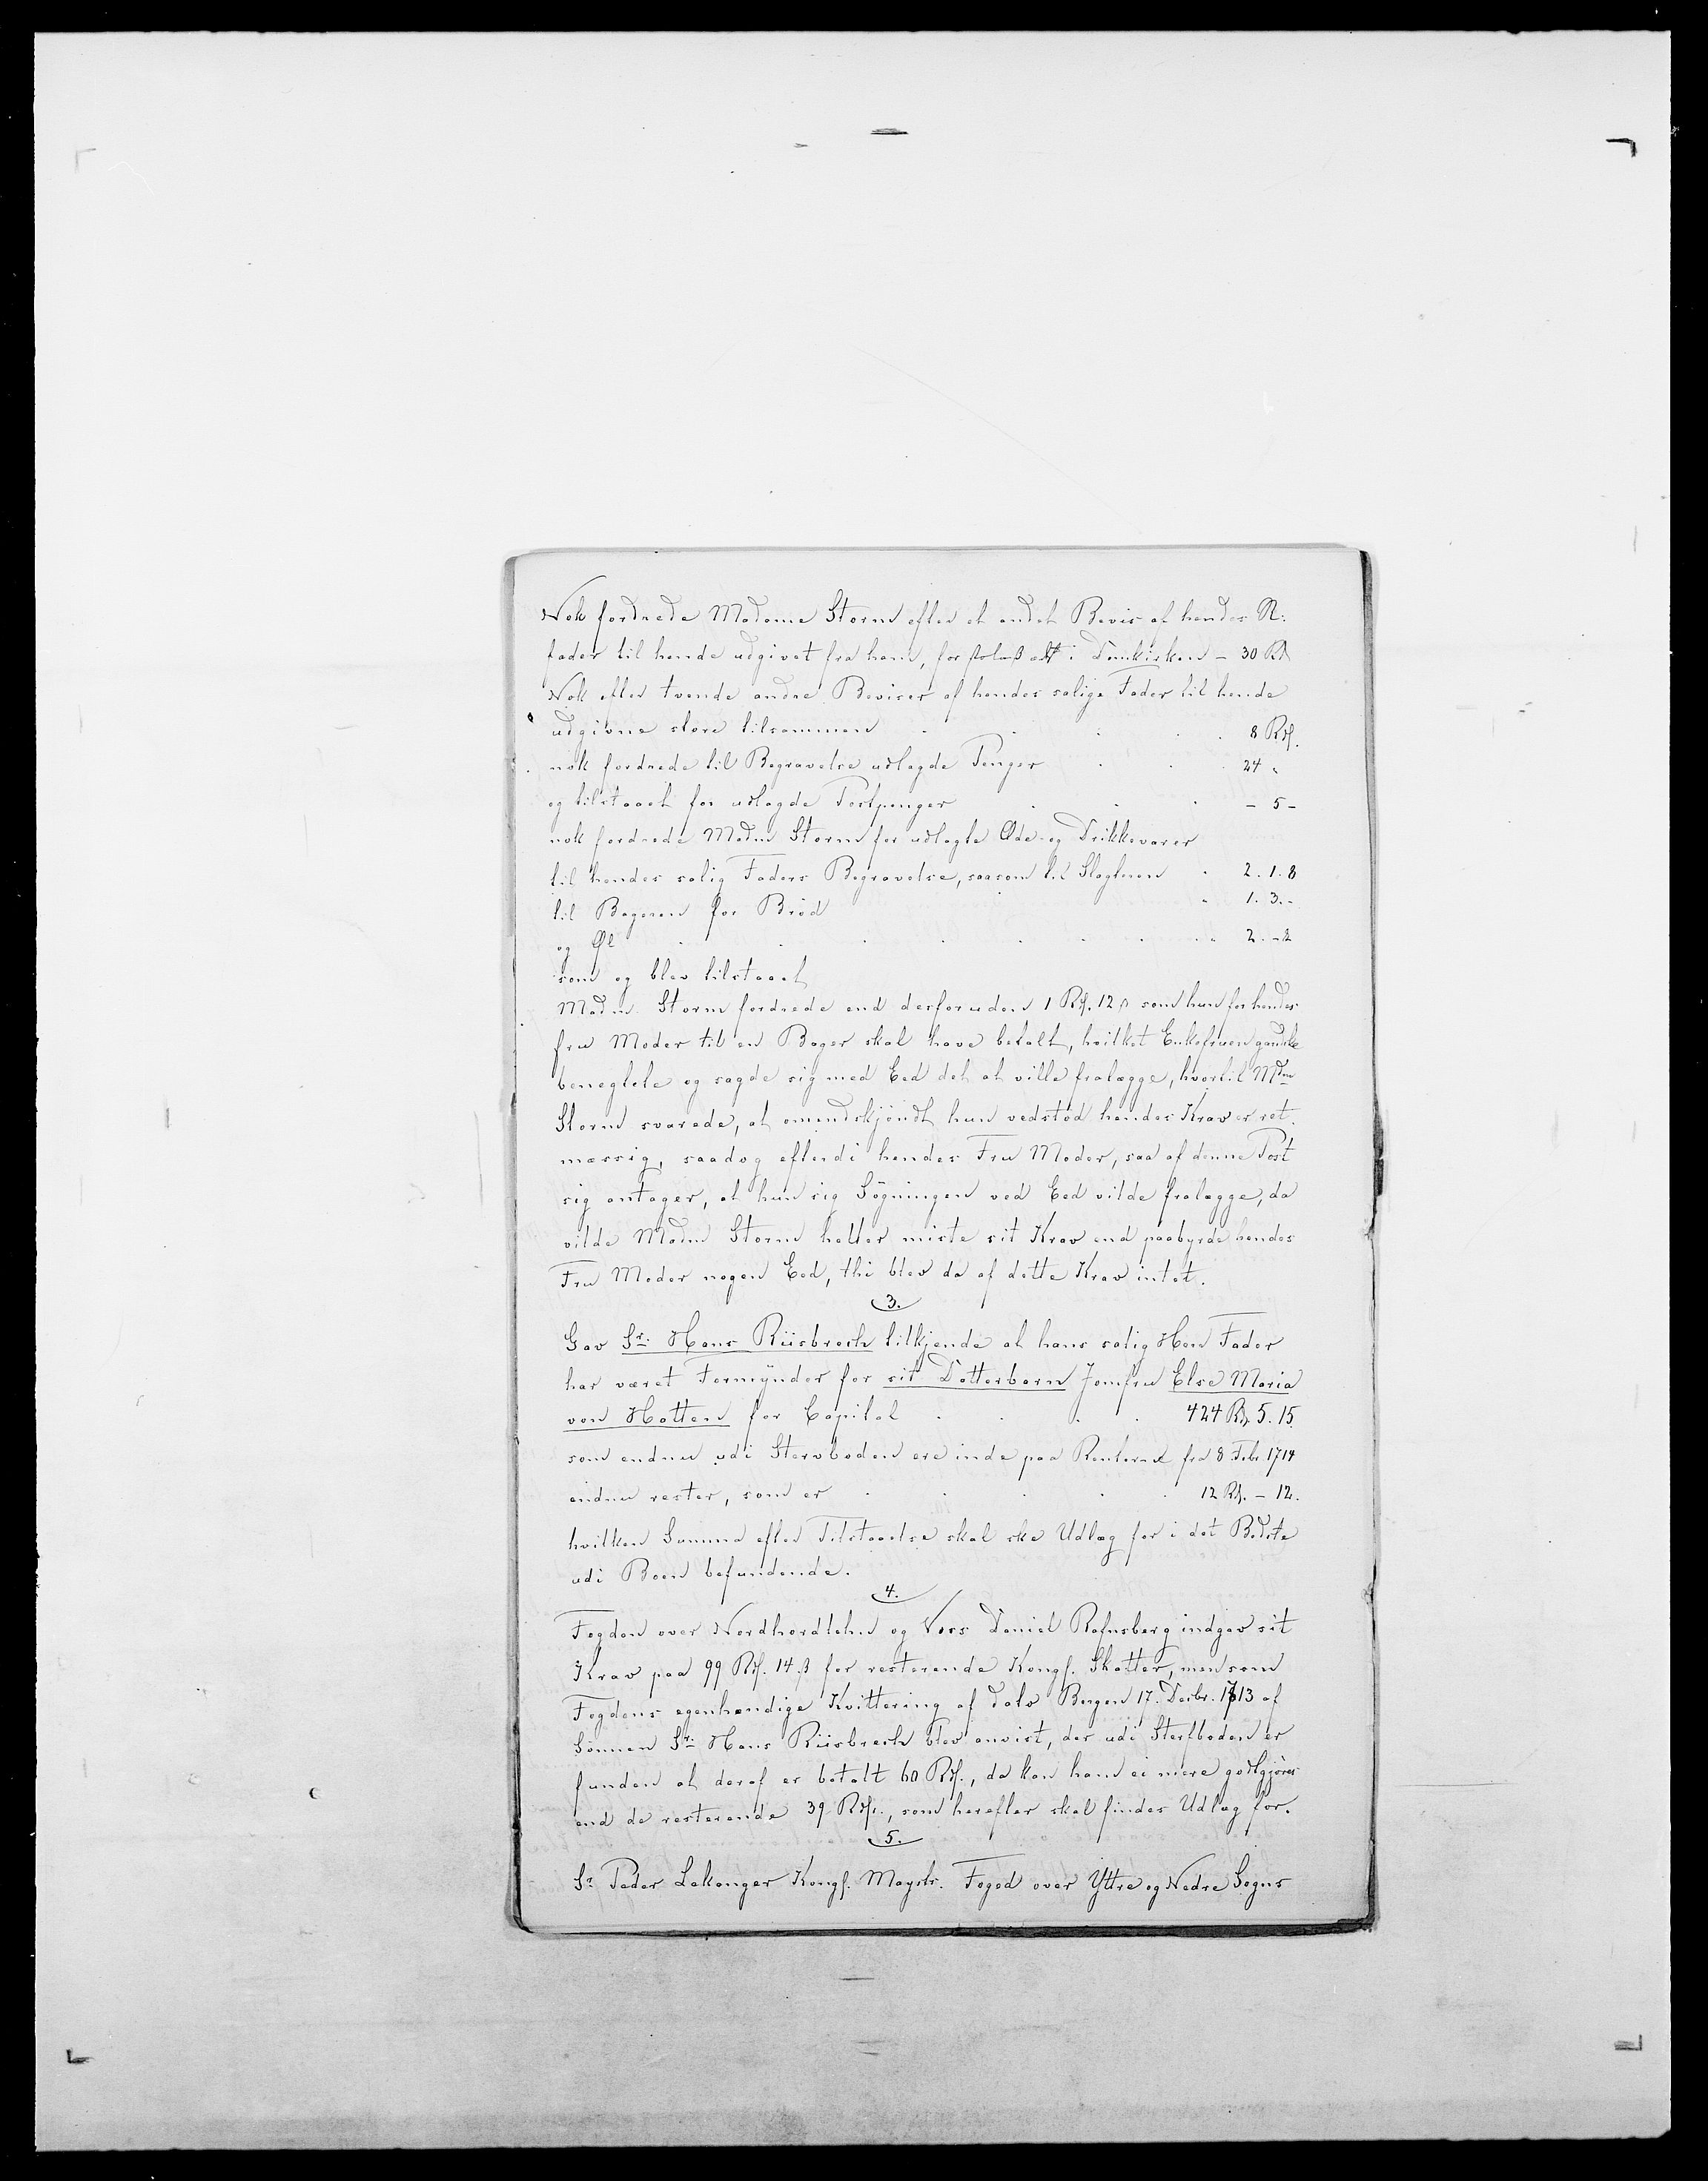 Nok fordrede Madame Storm efter et andet Bevis af hendes Sl:
fader til hende udgivet fra ham, for i Domkirken - 30 Rd
Nok efter tvende andre Beviser af hendes salige Fader til hende
udgivne store tilsammen . . . . . 8 Rdl.
nok fordrede til Begravelse udlagde Penger . . . 24 "
og tilstaaet for udlagde Postpenger . . . - 5 -
nok fordrede Madm Storm for udlagte Æde- og Drikkevarer
til hendes salig Faders Begravelse, saasom til Slagteren . 2. 1. 8
til Bageren for Bröd . 1. 3. -
og Øl . . . . . . . . 2. - 2
som og blev tilstaaet
Madm. Storm fordrede end desforuden 1 Rdl. 12 ß som hun for hendes
fru Moder til en Bager skal have betalt, hvilket Enkefruen gandske
benegtete og sagde sig med Eed det at ville fralægge, hvortil Mdm
Storm svarede, at omendskjöndt hun vedstod hendes Krav er ret-
mæssig, saadog efterdi hendes Fru Moder, saa af denne Post
sig antager, at hun sig Sögningen ved Eed vilde fralægge, da
vilde Madm Storm heller miste sit Krav end paabyrde hendes
Fru Moder nogen Eed, thi blev da af dette Krav intet.
3.
Gav Sr. Hans Riisbrech tilkjende at hans salig Herr Fader
har været Formÿnder for sit Datterbarn Jomfru Else Maria
von Hatten for Capital . . . . 424 Rd. 5. 15
som endnu udi Stervboden ere inde paa Renterne fra 8 Febr. 1714
endnu rester, som er . . . . . 12 Rd. - 12.
hvilken Summa efter Tilstaaelse skal ske Udlæg for i det Bedste
udi Boen befundende.
4.
Fogden over Nordhordlehn og Voss Daniel Rafnsberg indgav sit
Krav paa 99 Rdl. 14 ß for resterende Kongl. Skatter, men som
Fogdens egenhændige Kvittering af dato Bergen 17. Decbr. 1713 af
Sönnen Sr. Hans Riisbrech blev anvist, der udi Sterfboden er
funden at deraf er betalt 60 Rdl., da kan ham ei mere godtgjöres
end de resterende 39 Rdl., som herefter skal findes Udlæg for.
5.
Sr. Peder Lekanger Kongl. Mayets. Foged over Yttre og Nedre Sogns